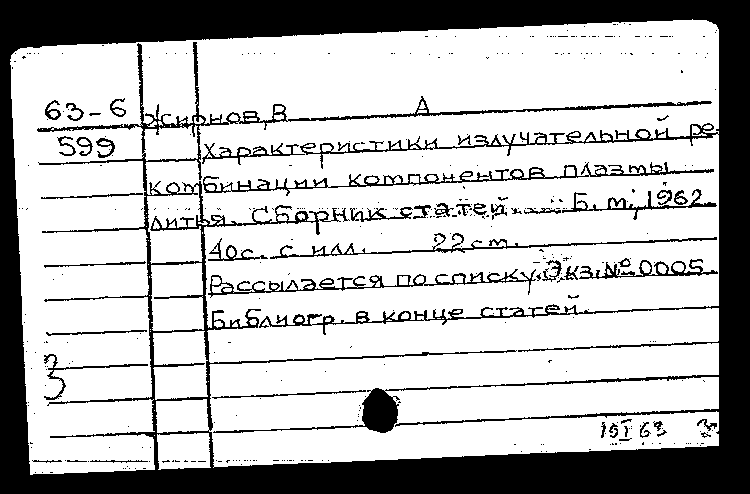 63-6 Жирнов, В А
599 Характеристики излучательной ре-
комбинации компонентов плазмы
лития. Сборник статей. Б. м., 1962.
40с. с илл. 22 см.
Рассылается по списку. Экз. № 0005.
Библиогр. в конце статей.
З
10 I 63